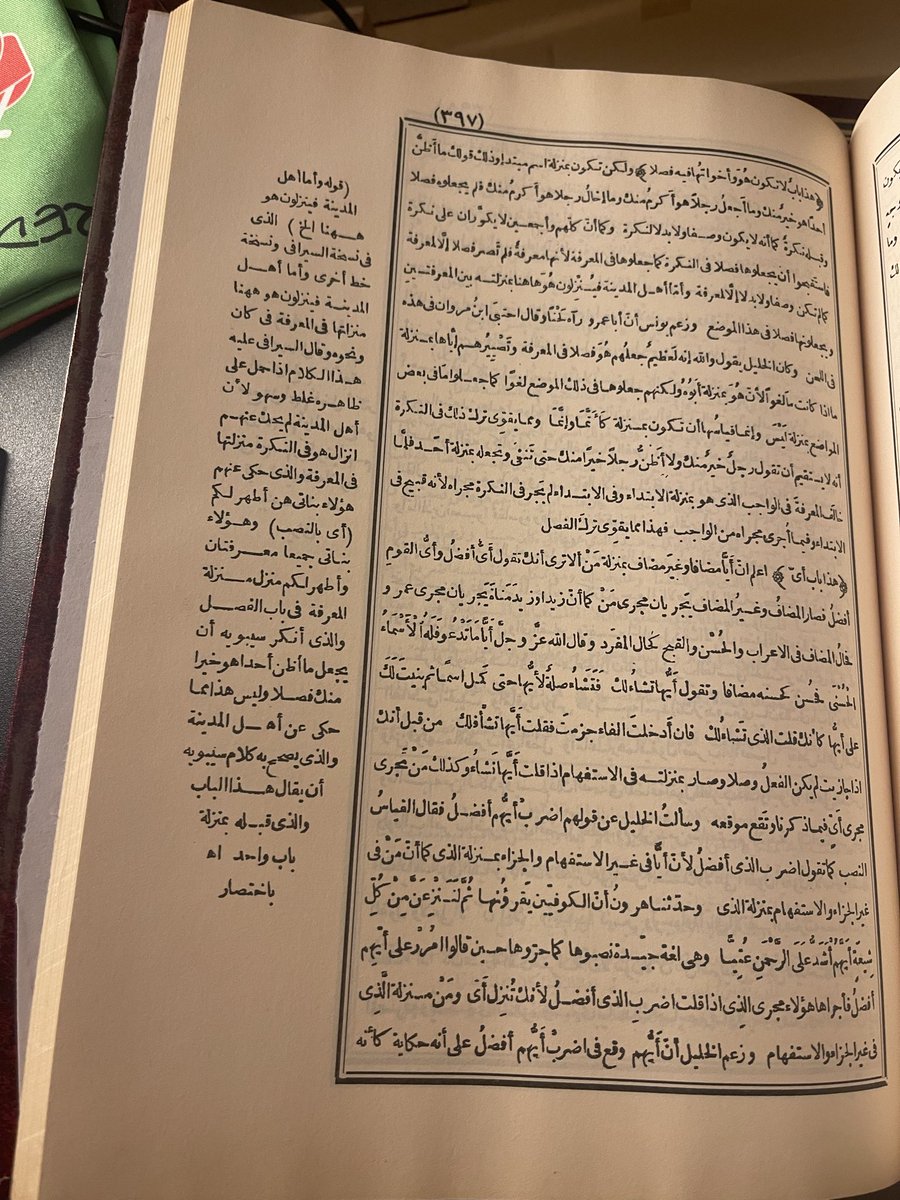 (٣٩٧)
﴿هذا باب لا تكون هو وأخواتها فيه فصلا﴾ ولكن تكون بمنزلة اسم مبتدا وذلك قولك ما أظنّ
أحدا هو خير منك وما أجعل رجلا هو أكرم منك وما إخال رجلا هو أكرم منك لم يجعلوه فصلا
وقبله نكرة كما أنه لا يكون وصفا ولا بدلا لنكرة وكما أنّ كلّهم وأجمعين لا يكرّران على نكرة
فاستقبحوا أن يجعلوها فصلا فى النكرة كما جعلوها فى المعرفة لأنها معرفة فلم تصر فصلا إلّا لمعرفة
كما لم تكن وصفا ولا بدلا إلّا لمعرفة وأمّا أهل المدينة فينزلون هو هاهنا بمنزلته بين المعرفتين
ويجعلونها فصلا فى هذا الموضع وزعم يونس أنّ أبا عمرو رآه لحنا وقال احتبى ابن مروان فى هذه
فى اللحن وكان الخليل يقول والله إنه لعظيم جعلهم هو فصلا فى المعرفة وتصييرهم إيّاها بمنزلة
ما اذا كانت ما لغوا لأنّ هو بمنزلة أبوه ولكنهم جعلوها فى ذلك الموضع لغوا كما جعلوا ما فى بعض
المواضع بمنزلة ليس وإنما قياسها أن تكون بمنزلة كأنّما وإنّما ومما يقوّى ترك ذلك فى النكرة
أنه لا يستقيم أن تقول رجل خير منك ولا أظنّ رجلا خيرا منك حتى تنفى وتجعله بمنزلة أحد فلمّا
خالف المعرفة فى الواجب الذى هو بمنزلة الابتداء وفى الابتداء لم يجر فى النكرة مجراه لأنه قبيح فى
الابتداء وفيما أجرى مجراه من الواجب فهذا مما يقوّى ترك الفصل
﴿هذا باب أىّ﴾ اعلم أنّ أيّا مضافا وغير مضاف بمنزلة من ألا ترى أنك تقول أىّ أفضل وأىّ القوم
أفضل فصار المضاف وغير المضاف يجريان مجرى من كما أنّ زيدا وزيد مناة يجريان مجرى عمرو
فحال المضاف فى الاعراب والحسن والقبح كحال المفرد وقال الله عزّ وجلّ أَيًّا مَا تَدْعُوا فَلَهُ الْأَسْمَاءُ
الْحُسْنَى فحسن كحسنه مضافا وتقول أيّها تشاء لك فتشاء صلة لأيّها حتى كمل اسما ثم بنيت لك
على أيّها كانك قلت الذى تشاء لك فان أدخلت الفاء جزمت فقلت أيّها تشأ فلك من قبل أنك
اذا جازيت لم يكن الفعل وصلا وصار بمنزلته فى الاستفهام اذا قلت أيّها تشاء وكذلك من تجرى
مجرى أىّ فيما ذكرنا وتقع موقعه وسألت الخليل عن قولهم اضرب أيّهم أفضل فقال القياس
النصب كما تقول اضرب الذى أفضل لأنّ أيّا فى غير الاستفهام والجزاء بمنزلة الذى كما أنّ من فى
غير الجزاء والاستفهام بمنزلة الذى وحدّثنا هرون أنّ الكوفيّين يقرؤنها ثُمَّ لَنَنْزِعَنَّ مِنْ كُلِّ
شِيعَةٍ أَيَّهُمْ أَشَدُّ عَلَى الرَّحْمَنِ عِتِيًّا وهى لغة جيّدة نصبوها كما جرّوها حين قالوا امرر على أيّهم
أفضل فأجراها هؤلاء مجرى الذى اذا قلت اضرب الذى أفضل لأنك تنزل أىّ ومن منزلة الّذى
فى غير الجزاء والاستفهام وزعم الخليل أنّ أيّهم وقع فى اضرب أيّهم أفضل على أنه حكاية كأنه
(قوله وأما أهل
المدينة فينزلون هو
ههنا الخ) الذى
فى نسخة السيرافى ونسخة
خط أخرى وأما أهل
المدينة فينزلون هو ههنا
منزلتها فى المعرفة فى كان
ونحوه وقال السيرافى عليه
هذا الكلام اذا حمل على
ظاهره غلط وسهو لأن
أهل المدينة لم يحك عنهم
انزال هو فى النكرة منزلتها
فى المعرفة والذى حكى عنهم
هؤلاء بناتى هن أطهر لكم
(أى بالنصب) وهؤلاء
بناتى جميعا معرفتان
وأطهر لكم منزل منزلة
المعرفة فى باب الفصل
والذى أنكر سيبويه أن
يجعل ما أظن أحدا هو خيرا
منك فصلا وليس هذا مما
حكى عن أهل المدينة
والذى يصحح به كلام سيبويه
أن يقال هذا الباب
والذى قبله بمنزلة
باب واحد اه
باختصار